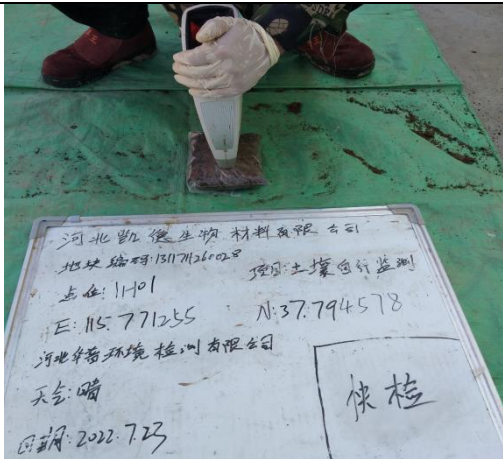 河北凯德生物材料有限公司
地块编码:1311711260028
项目:土壤自行监测
点位:1H01
E:115.771255
N:37.794578
河北华普环境检测有限公司
天气:晴
快检
日期:2022.7.23